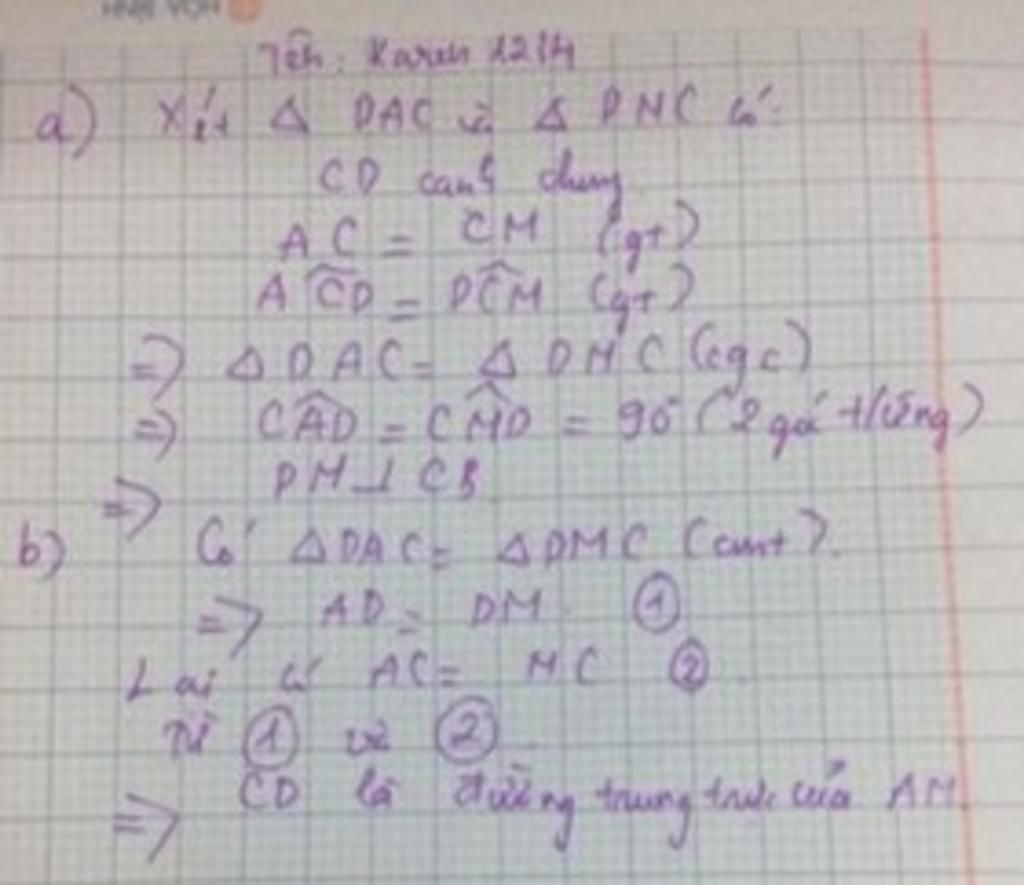 Tên: Karen 1214
a) Xét Δ DAC và Δ DMC có:
CD cạnh chung
AC = CM (gt)
A\widehat{CD} = D\widehat{CM} (gt)
=> Δ DAC = Δ DMC (cgc)
=> C\widehat{AD} = C\widehat{MD} = 90° (2 góc t/ứng)
=> DM ⊥ CB
b) Có ΔDAC = ΔDMC (cmt).
=> AD = DM ①
Lại có AC = MC ②.
Từ ① và ②
=> CD là đường trung trực của AM